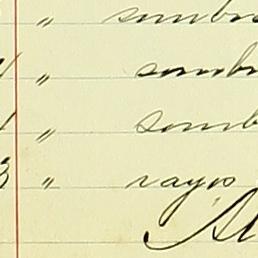 " sombr
" sombr
1 " somb
3 " rayos